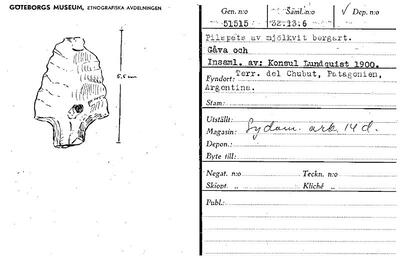 GÖTEBORGS MUSEUM, ETNOGRAFISKA AVDELNINGEN
5,5 cm
Gen. n:o Saml. n:o ✓ Dep. n:o
51515 32.13.6
Pilspets av mjölkvit bergart.
Gåva och
Insaml. av: Konsul Lundquist 1900.
Fyndort: Terr. del Chubut, Patagonien,
Argentina.
Stam:
Utställt:
Magasin: Sydam. ark. 14 d.
Depon.:
Byte till:
Negat. n:o Teckn. n:o
Skiopt. „ Kliché „
Publ.: